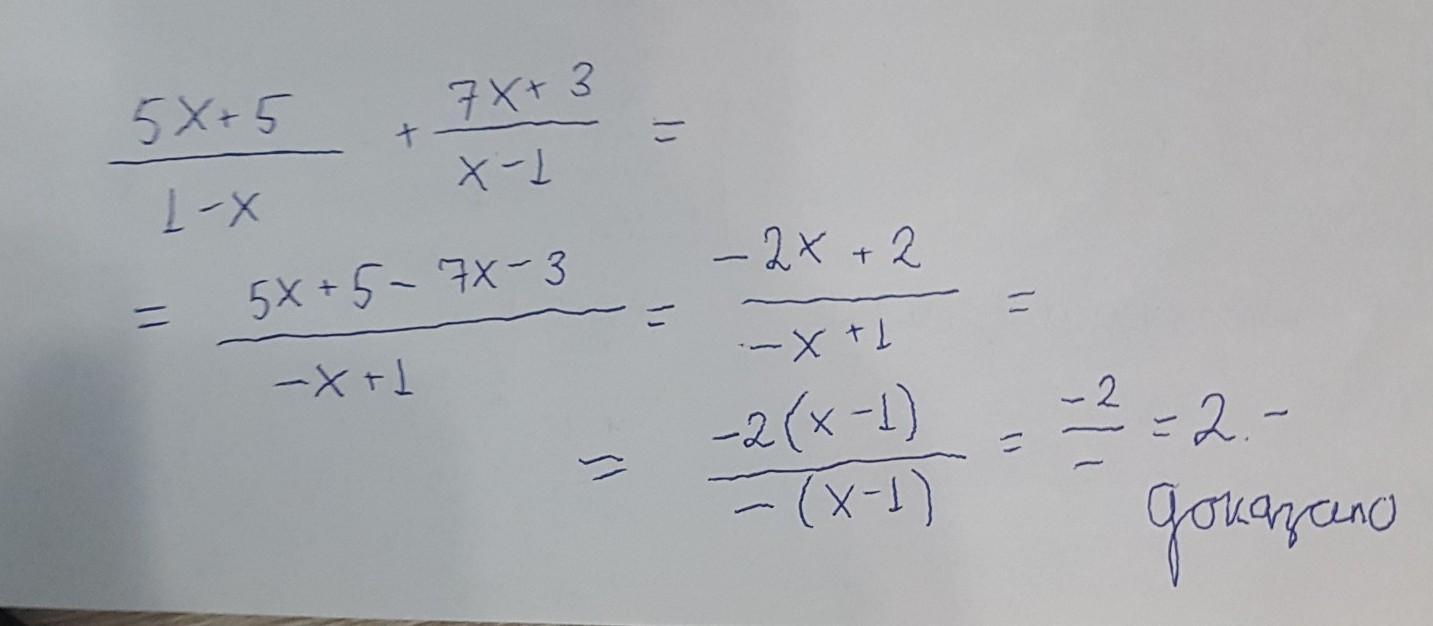 (5x+5)/(1-x) + (7x+3)/(x-1) =
= (5x+5-7x-3)/(-x+1) = (-2x+2)/(-x+1) =
= (-2(x-1))/(-(x-1)) = (-2)/(-) = 2. -
доказано